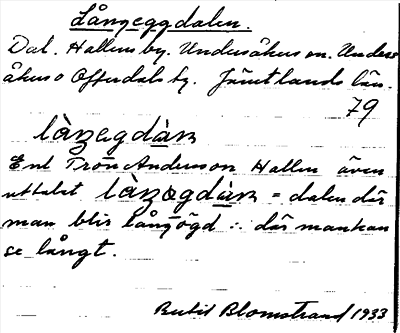 Långeggdalen.
Dal. Hallens by. Undersåkers sn. Under
åkers o Offerdals tg. Jämtlands län.
79
làŋegdàn
Enl Trön Andersson Hallen även
uttalet làŋøgdàn = dalen där
man blir långögd ∴ där man kan
se långt.
Bertil Blomstrand 1933